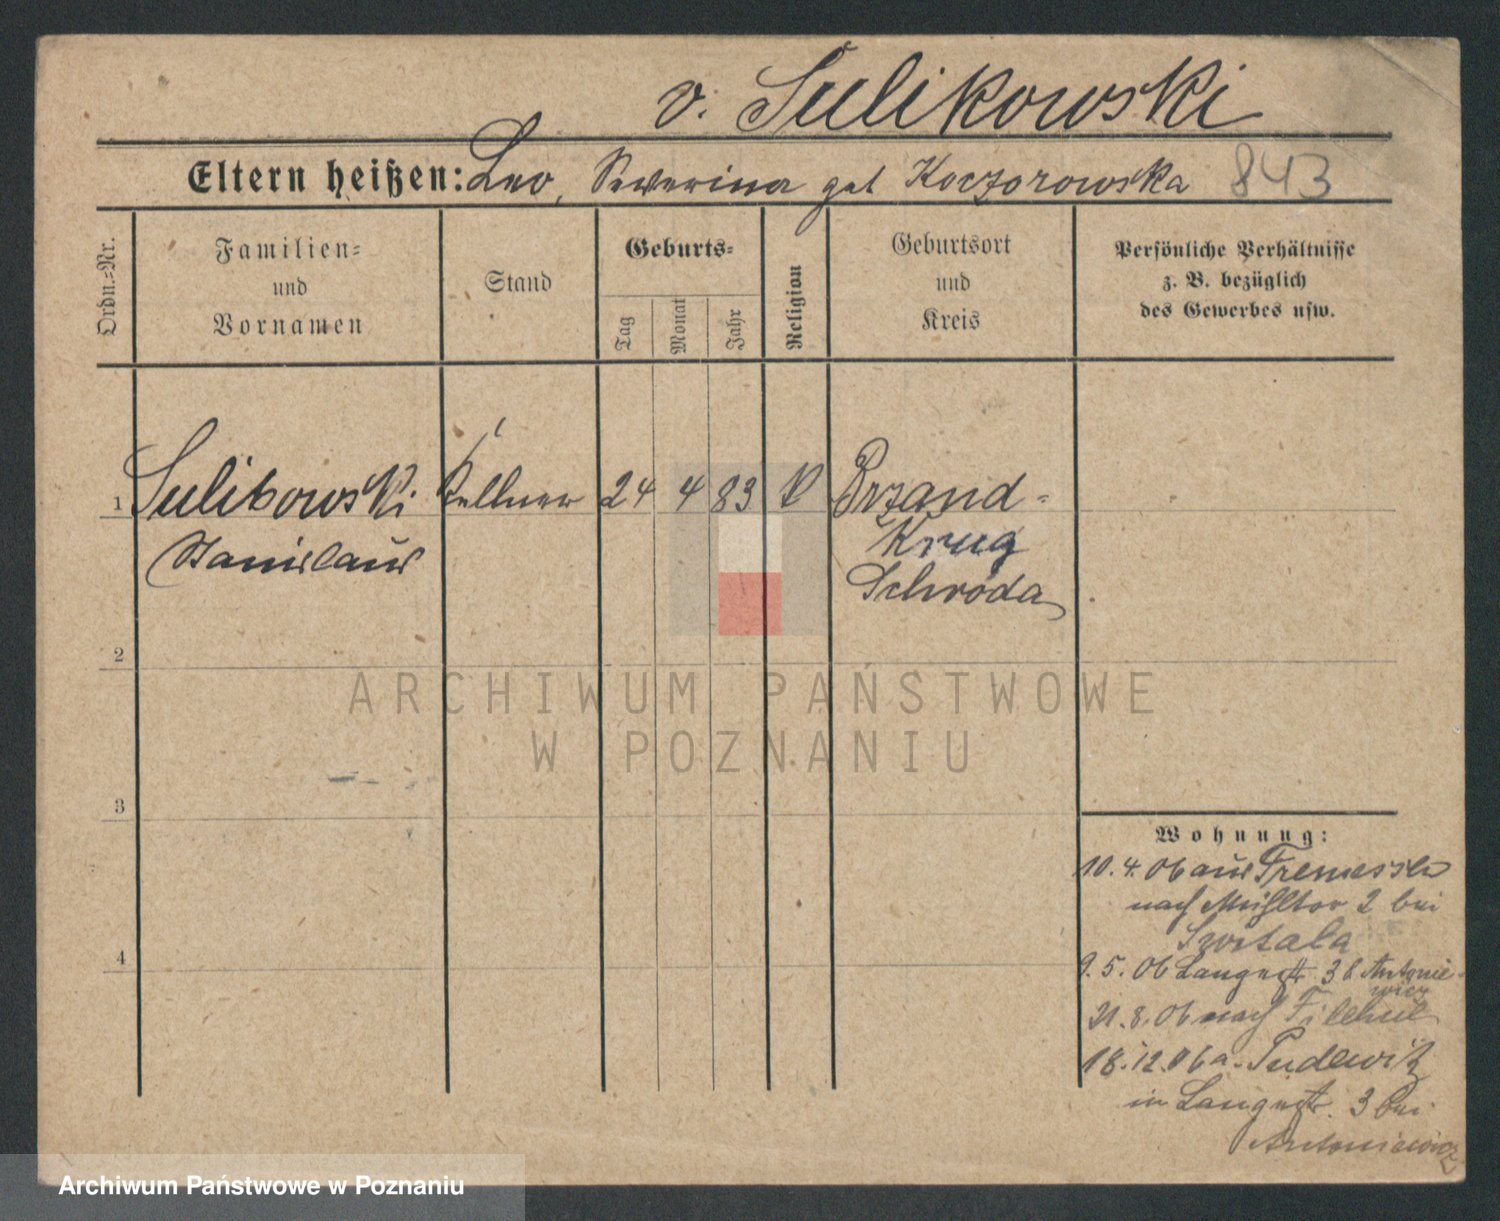 v. Sulikowski
Eltern heißen: Leo, Severina geb Koczorowska 843
Ordn.=Nr.
Familien=
und
Vornamen
Stand
Geburts=
Tag
Monat
Jahr
Religion
Geburtsort
und
Kreis
Persönliche Verhältnisse
z. B. bezüglich
des Gewerbes usw.
1 Sulikowski Kellner 24 4 83 k Brzand-
Stanislaus
Krug
Schroda
2
3
4
Wohnung:
10.4.06 aus Tremessen
nach Mühltor 2 bei
9.5.06 Langestr. 3 b Antonie-
wicz
31.8.06 nach Filehne
18.12.06 a. Pudewitz
in Langestr. 3 bei
Antoniewicz
ARCHIWUM PAŃSTWOWE
W POZNANIU
Archiwum Państwowe w Poznaniu